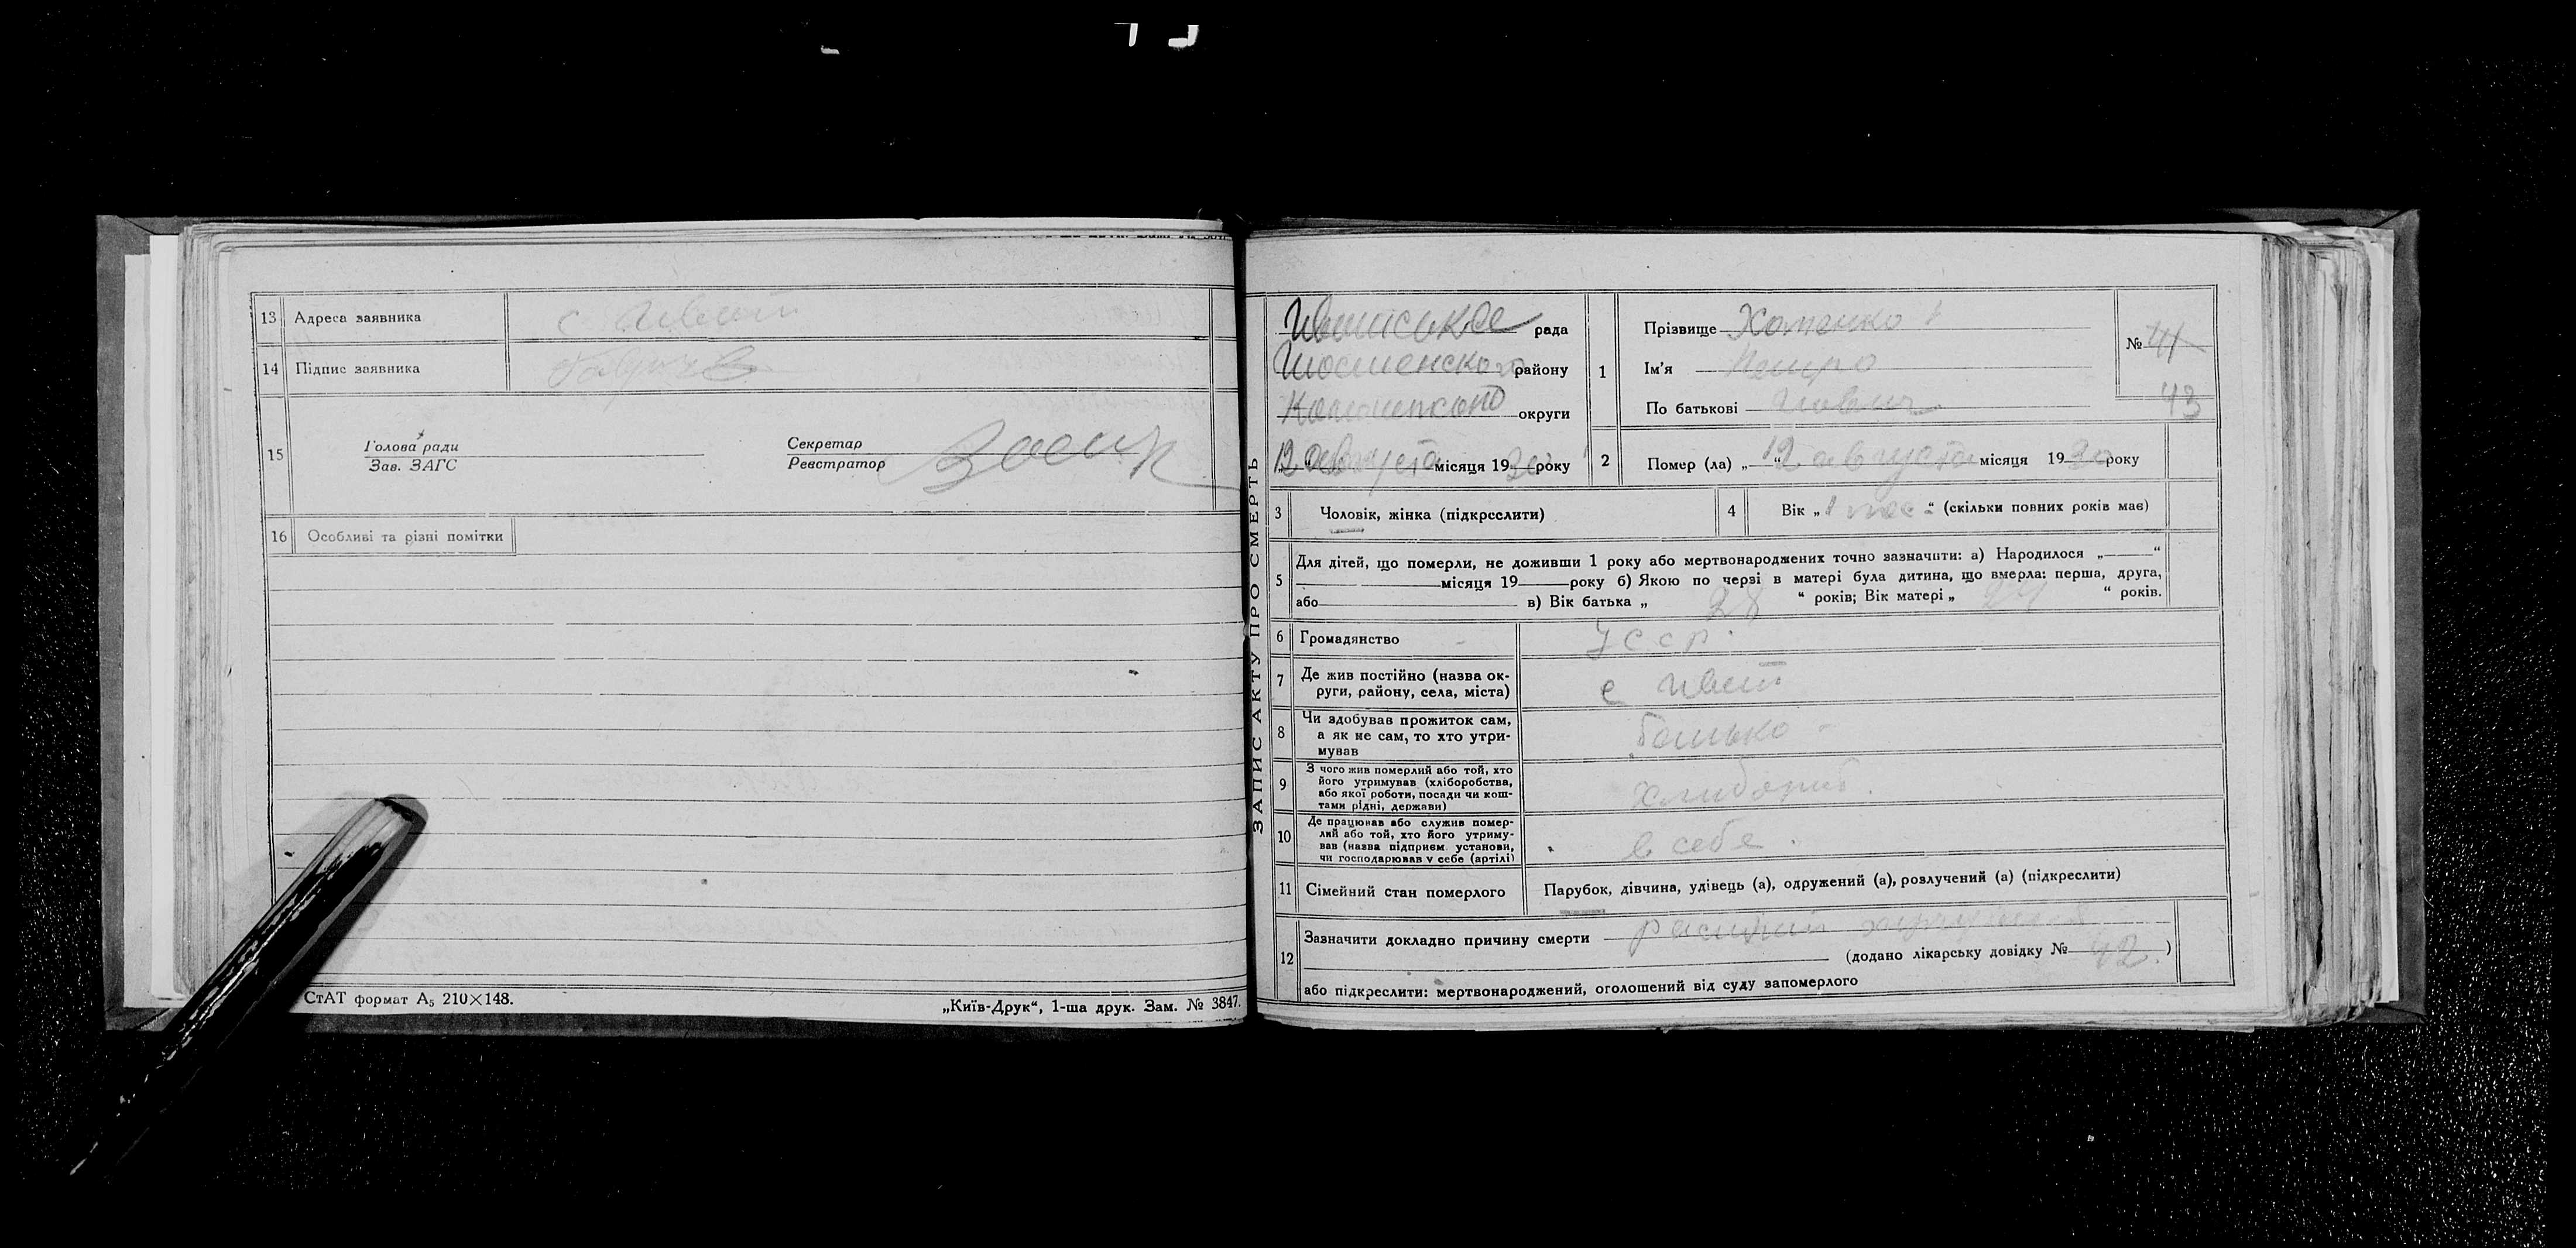 13 Адреса заявника с Ивот
14 Підпис заявника
15 Голова ради
Зав. ЗАГС
Секретар
Реєстратор
16 Особливі та різні помітки
СтАТ формат А₅ 210×148.
„Київ-Друк“, 1-ша друк. Зам. № 3847.
ЗАПИС АКТУ ПРО СМЕРТЬ
рада
району
округи
12 августа місяця 1930 року
1 Прізвище Хоменко
Ім’я Петро
По батькові
№ 41
43
2 Помер (ла) „12“ августа місяця 1930 року
3 Чоловік, жінка (підкреслити)
4 Вік „1 мес“ (скільки повних років має)
5 Для дітей, що померли, не доживши 1 року або мертвонароджених точно зазначити: а) Народилося „——“
місяця 19 року б) Якою по черзі в матері була дитина, що вмерла: перша, друга,
або в) Вік батька „ 28 “ років; Вік матері „ “ років.
6 Громадянство УССР.
7 Де жив постійно (назва округи, району, села, міста) с Ивот
8 Чи здобував прожиток сам,
а як не сам, то хто утримував батько
9 З чого жив померлий або той, хто
його утримував (хліборобства,
або якої роботи, посади чи коштами рідні, держави)
10 Де працював або служив померлий або той, хто його утримував (назва підприєм. установи,
чи господарював у себе (артілі) в себе.
11 Сімейний стан померлого Парубок, дівчина, удівець (а), одружений (а), розлучений (а) (підкреслити)
12 Зазначити докладно причину смерти
(додано лікарську довідку № 42.)
або підкреслити: мертвонароджений, оголошений від суду запомерлого